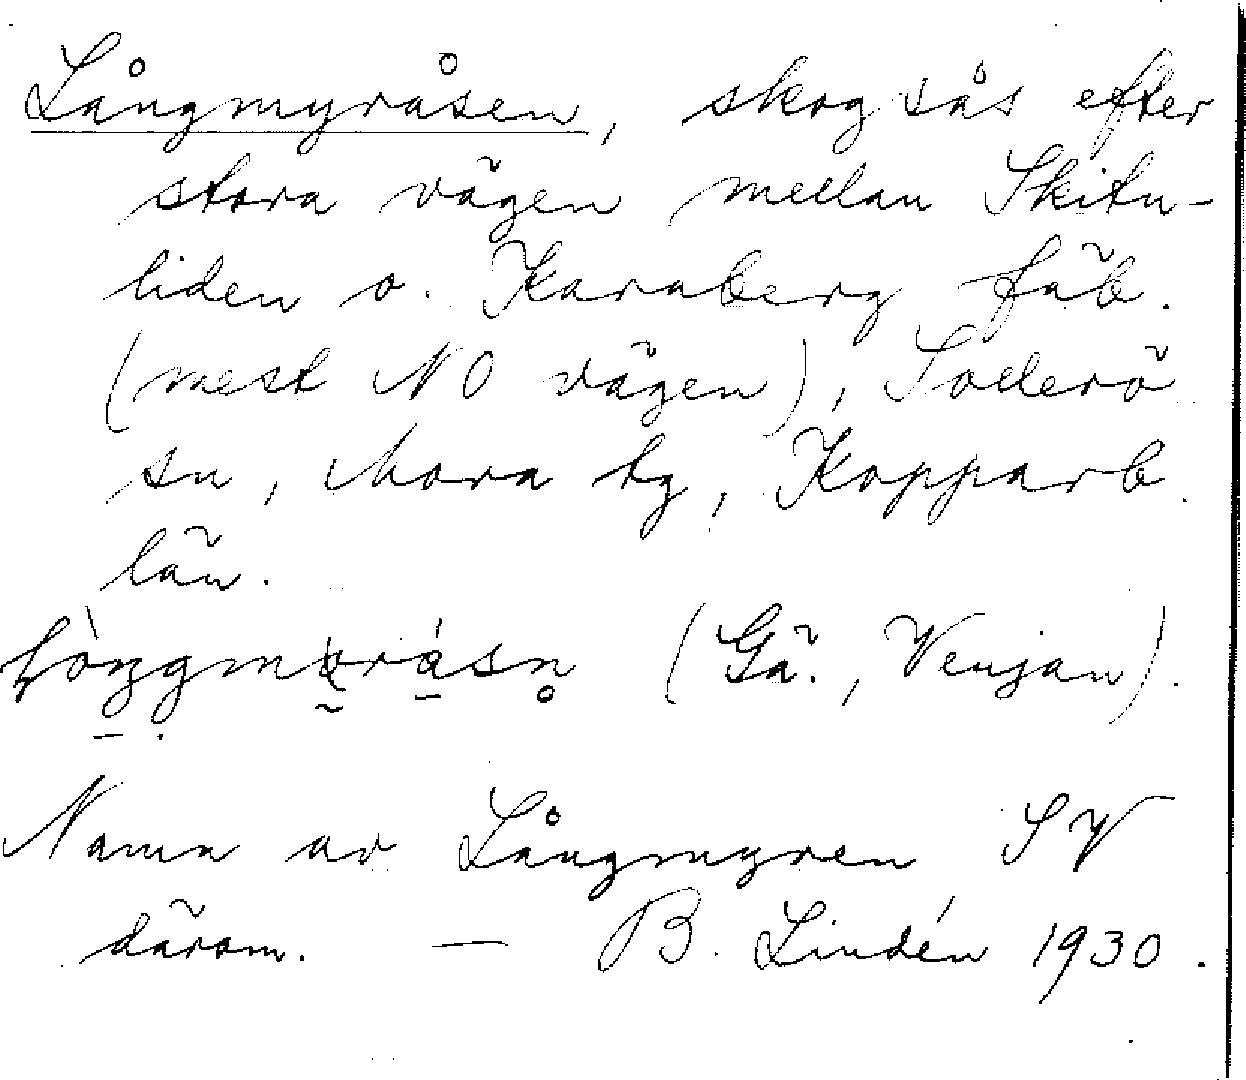 Långmyråsen, skogsås efter
stora vägen mellan Skitu-
liden o. Karaberg fäb.
(mest NO vägen), Sollerö
sn, Mora tg, Kopparb.
län.
(Gä., Venjan).
Namn av Långmyren SV
därom. — B. Lindén 1930.